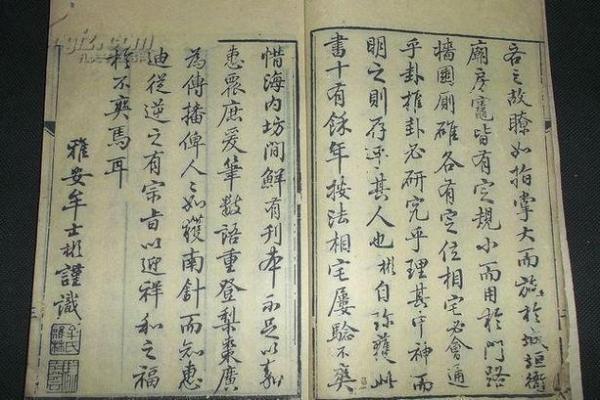 吝之故瞭如指掌大而施於城垣衙
廟房竈皆有定規小而用於門路
墻圍廁碓各有定位相宅必會通
乎卦推卦必研究乎理其中神而
明之則存乎其人也彬自獲此
書十有餘年按法相宅屢驗不爽
惜海內坊間鮮有刊本不足以嘉
惠眾庶爰筆數語重登梨棗廣
為傳播俾人〻如獲南針而知惠
迪從逆之有宗旨以迎祥和之福
於不爽焉耳
雅安牟士彬謹識